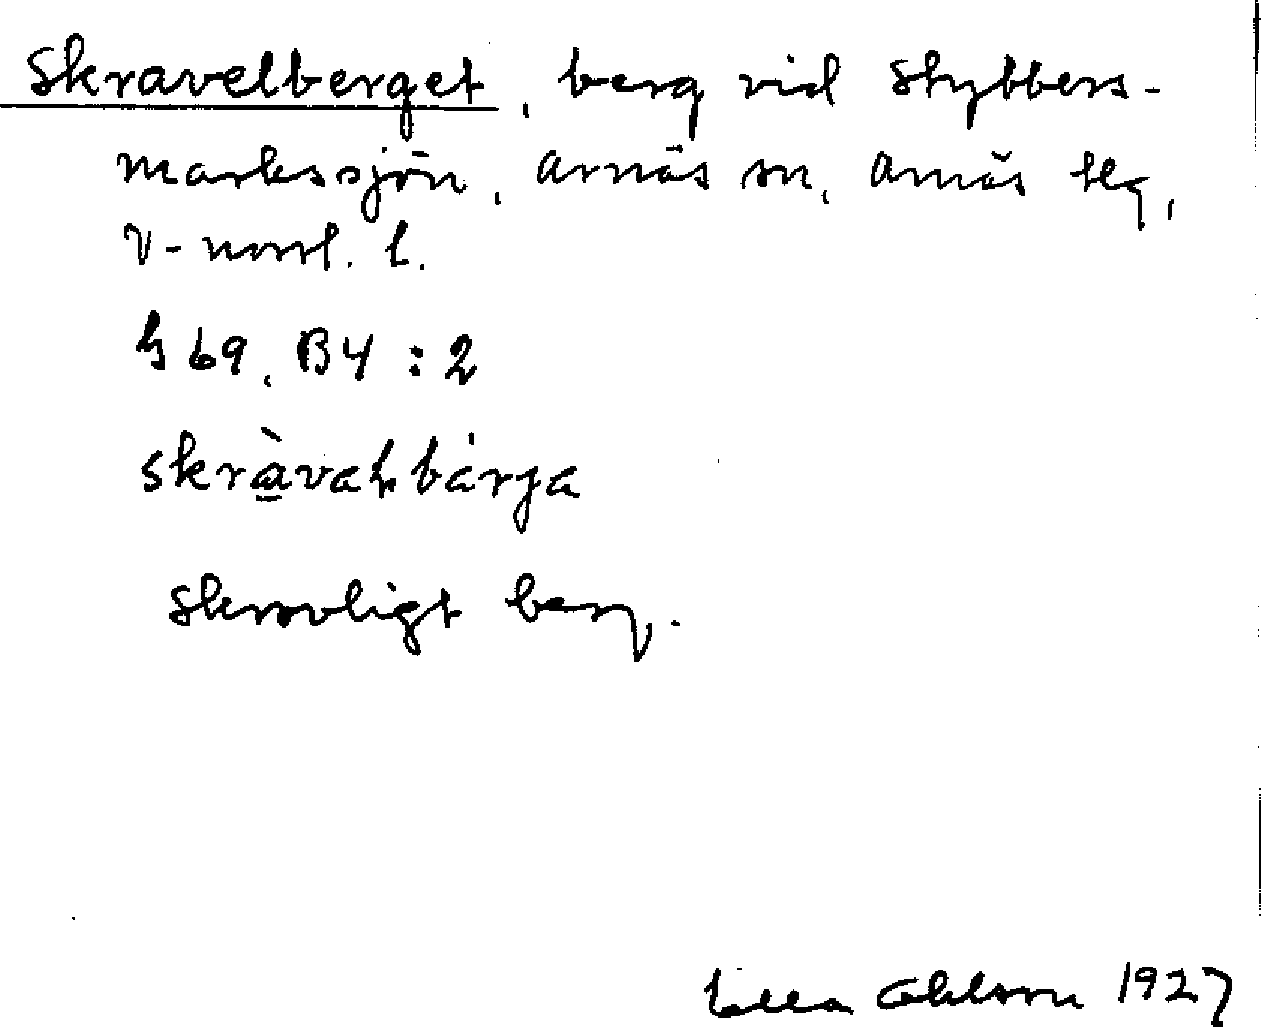 Skravelberget, berg vid Stybbers-
markssjön, Arnäs sn, Arnäs tlg,
V-norrl. l.
G 69, B4 : 2
skràvaḷbárja
Skrovligt berg.
Ohlson 1927